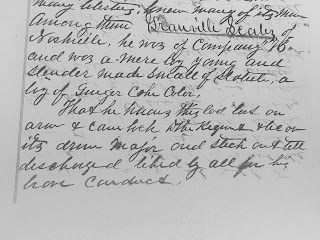 many &nbsp;knew many of its men
among them Granville Scales of
Nashville, he was of Company "B"
and was a mere boy young and
slender made small of Stature, a
boy of Ginger Cake Color.
That he knows this lost an
arm & came back to the Regiment & became
its drum Major and stuck out till
discharged liked by all for his
brave Conduct.